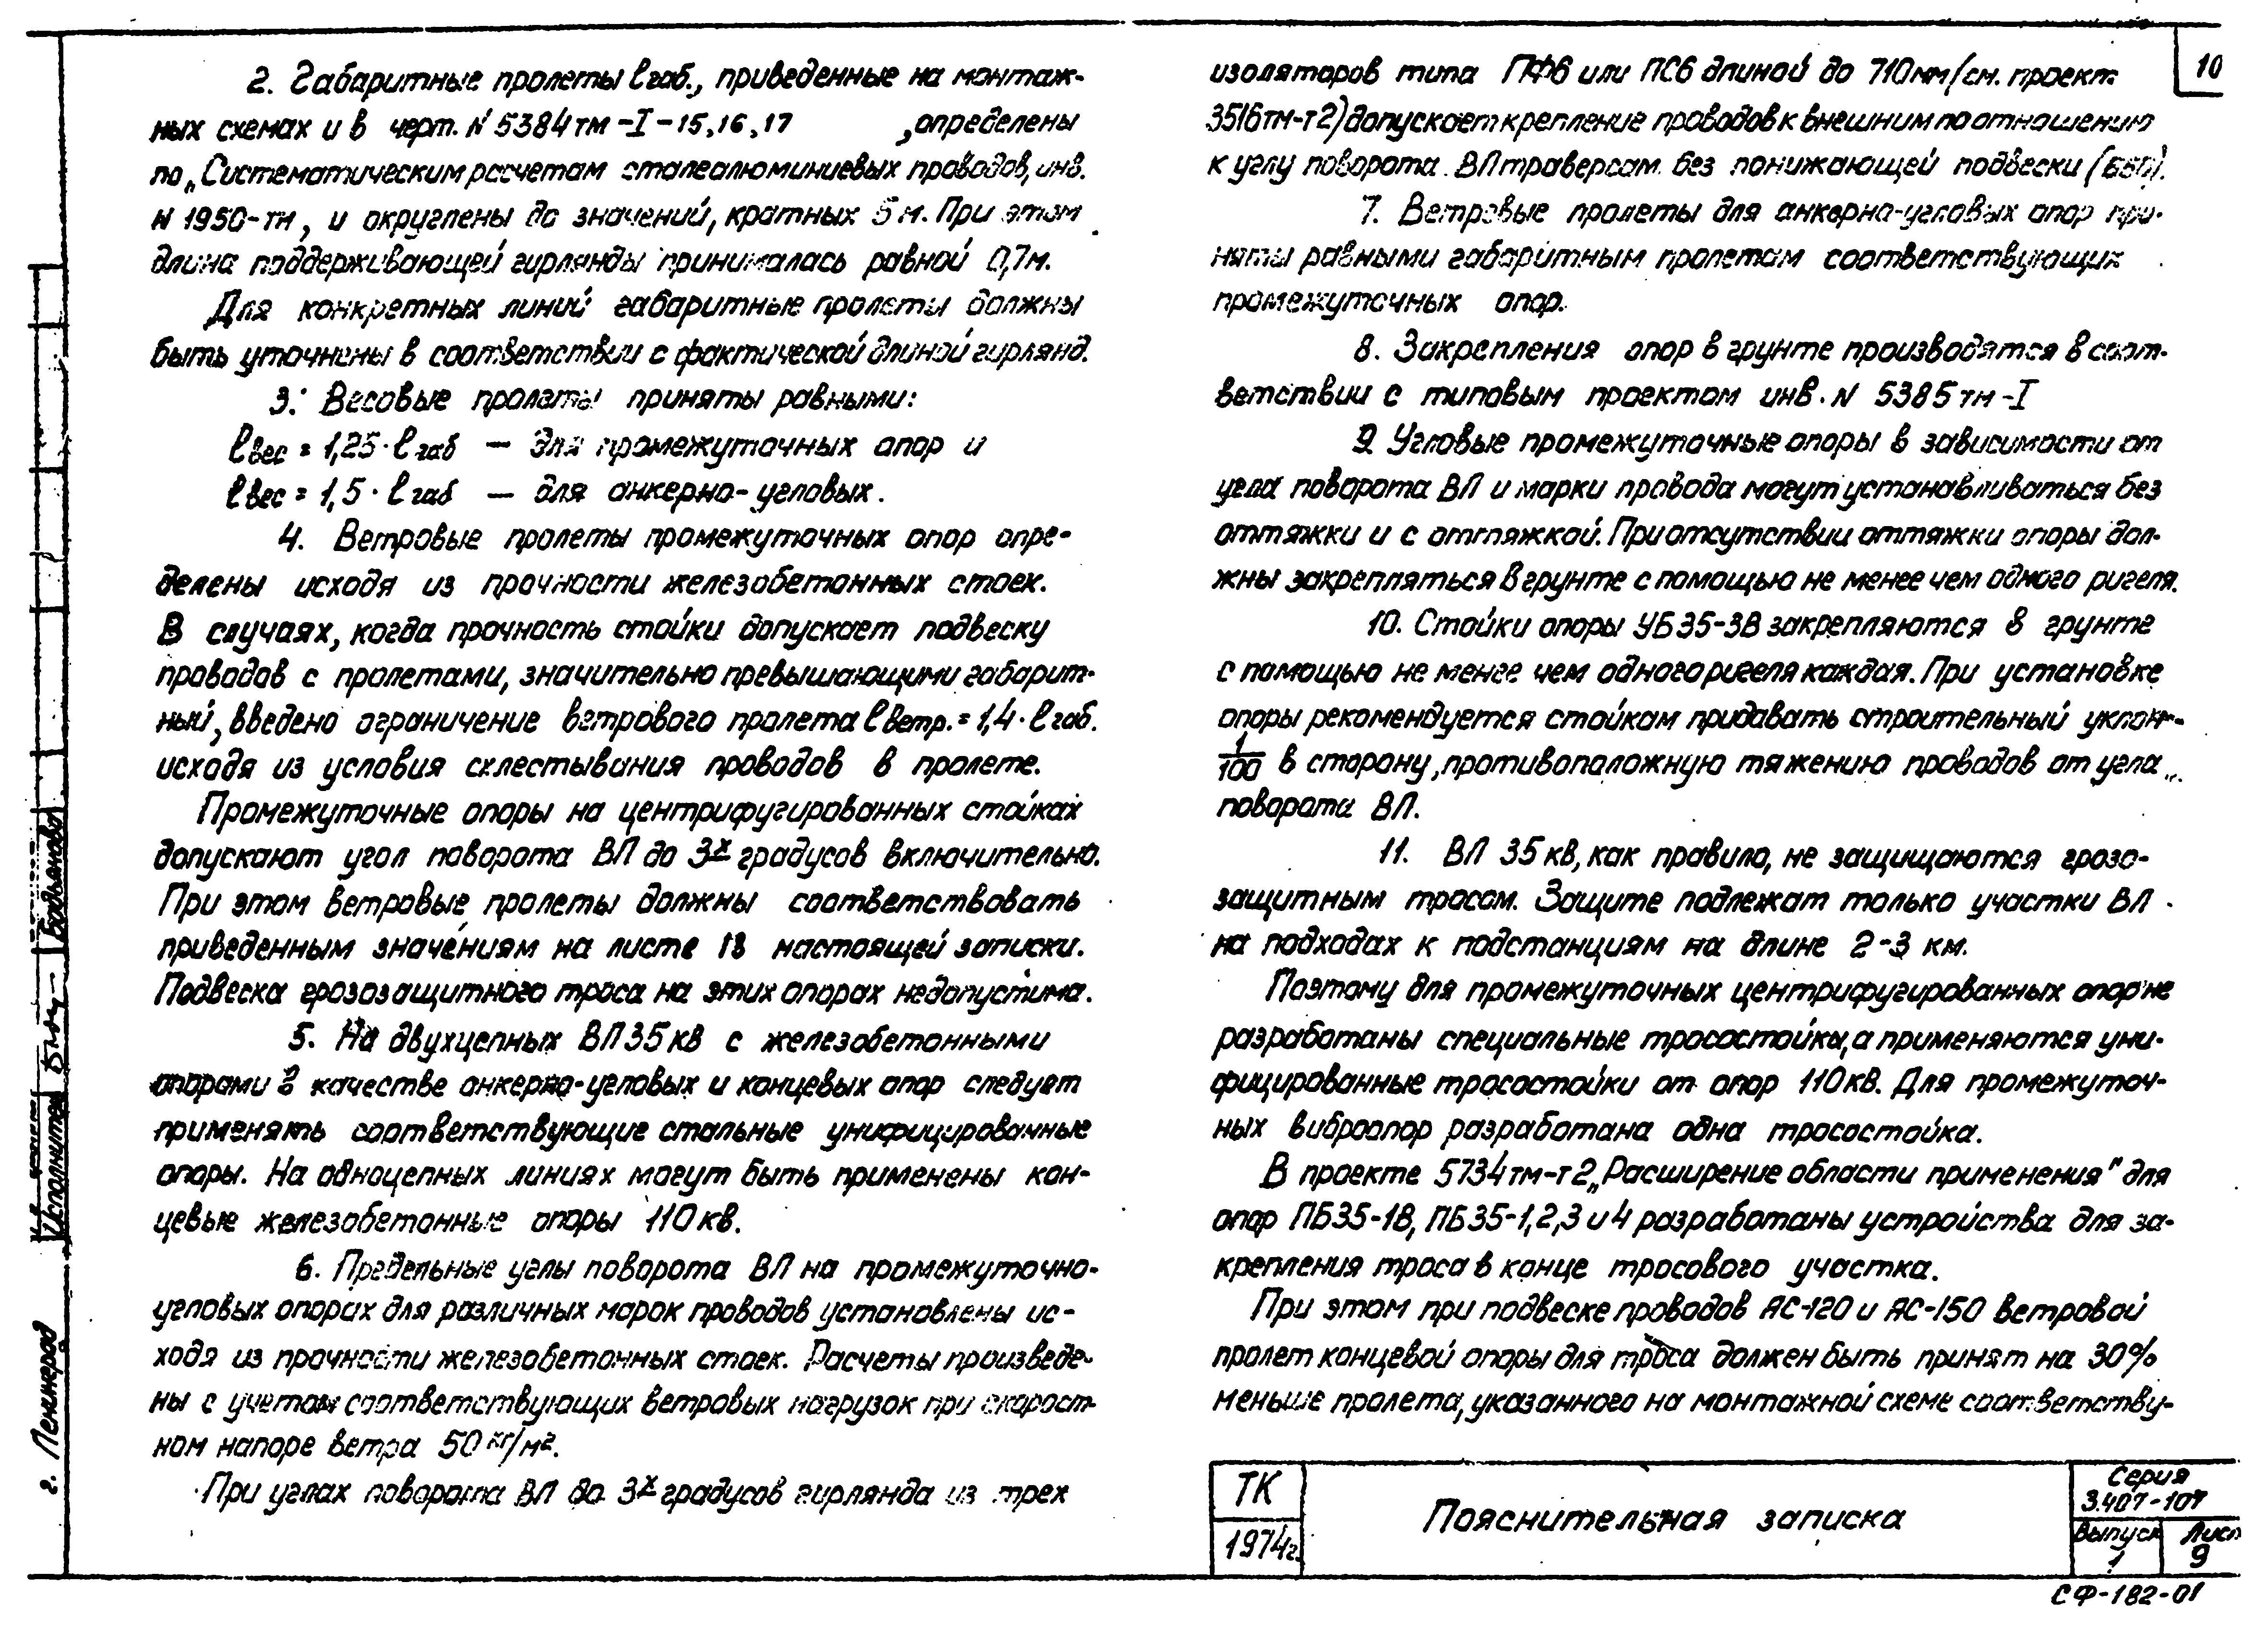 2. Габаритные пролеты lгаб., приведенные на монтаж-
ных схемах и в черт. N 5384тм-I-15,16,17 , определены
по „Систематическим расчетам сталеалюминиевых проводов, инв.
N 1950-тм, и округлены до значений, кратных 5 м. При этом
длина поддерживающей гирлянды принималась равной 0,7м.
Для конкретных линий габаритные пролеты должны
быть уточнены в соответствии с фактической длиной гирлянд.
3. Весовые пролеты приняты равными:
lвес = 1,25 · lгаб — для промежуточных опор и
lвес = 1,5 · lгаб — для анкерно-угловых.
4. Ветровые пролеты промежуточных опор опре-
делены исходя из прочности железобетонных стоек.
В случаях, когда прочность стойки допускает подвеску
проводов с пролетами, значительно превышающими габарит-
ный, введено ограничение ветрового пролета lветр. = 1,4 · lгаб.
исходя из условия схлестывания проводов в пролете.
Промежуточные опоры на центрифугированных стойках
допускают угол поворота ВЛ до 3х градусов включительно.
При этом ветровые пролеты должны соответствовать
приведенным значениям на листе 18 настоящей записки.
Подвеска грозозащитного троса на этих опорах недопустима.
5. На двухцепных ВЛ 35 кв с железобетонными
опорами в качестве анкерно-угловых и концевых опор следует
применять соответствующие стальные унифицированные
опоры. На одноцепных линиях могут быть применены кон-
цевые железобетонные опоры 110 кв.
6. Предельные углы поворота ВЛ на промежуточно-
угловых опорах для различных марок проводов установлены ис-
ходя из прочности железобетонных стоек. Расчеты произведе-
ны с учетом соответствующих ветровых нагрузок при скорост-
ном напоре ветра 50 кг/м².
При углах поворота ВЛ до 3х градусов гирлянда из трех
изоляторов типа ПФ6 или ПС6 длиной до 710мм/см. проект
3516тм-т2) допускает крепление проводов к внешним по отношению
к углу поворота ВЛ траверсам без понижающей подвески
7. Ветровые пролеты для анкерно-угловых опор при-
няты равными габаритным пролетам соответствующих
промежуточных опор.
8. Закрепления опор в грунте производятся в соот-
ветствии с типовым проектом инв. N 5385тм-I
9. Угловые промежуточные опоры в зависимости от
угла поворота ВЛ и марки провода могут устанавливаться без
оттяжки и с оттяжкой. При отсутствии оттяжки опоры дол-
жны закрепляться в грунте с помощью не менее чем одного ригеля.
10. Стойки опоры УБ35-3В закрепляются в грунте
с помощью не менее чем одного ригеля каждая. При установке
опоры рекомендуется стойкам придавать строительный уклон
1/100 в сторону, противоположную тяжению проводов от угла
поворота ВЛ.
11. ВЛ 35 кв, как правило, не защищаются грозо-
защитным тросом. Защите подлежат только участки ВЛ
на подходах к подстанциям на длине 2-3 км.
Поэтому для промежуточных центрифугированных опор не
разработаны специальные тросостойки, а применяются уни-
фицированные тросостойки от опор 110 кв. Для промежуточ-
ных виброопор разработана одна тросостойка.
В проекте 5734тм-т2 „Расширение области применения" для
опор ПБ35-1В, ПБ35-1,2,3 и 4 разработаны устройства для за-
крепления троса в конце тросового участка.
При этом при подвеске проводов АС-120 и АС-150 ветровой
пролет концевой опоры для троса должен быть принят на 30%
меньше пролета, указанного на монтажной схеме соответству-
10
ТК
1974г.
Пояснительная записка
Серия
3.407-107
Выпуск
1
Лист
9
СФ-182-01
Исполнител
г. Ленинград